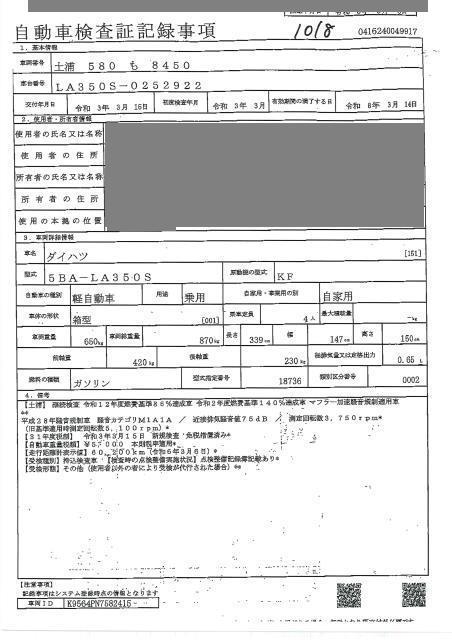 自動車検査証記録事項 10/8 0416240049917
1. 基本情報
車両番号 土浦 580 も 8450
車台番号 LA350S-0252922
交付年月日 令和 3年 3月 15日 初度検査年月 令和 3年 3月 有効期間の満了する日 令和 8年 3月 14日
2. 使用者・所有者情報
使用者の氏名又は名称
使用者の住所
所有者の氏名又は名称
所有者の住所
使用の本拠の位置
3. 車両詳細情報
車名 ダイハツ [151]
型式 5BA-LA350S 原動機の型式 KF
自動車の種別 軽自動車 用途 乗用 自家用・事業用の別 自家用
車体の形状 箱型 [001] 乗車定員 4人 最大積載量 -kg
車両重量 650kg 車両総重量 870kg 長さ 339cm 幅 147cm 高さ 150cm
前軸重 420kg 後軸重 230kg 総排気量又は定格出力 0.65 L
燃料の種類 ガソリン 型式指定番号 18736 類別区分番号 0002
4. 備考
【土浦】 継続検査 令和12年度燃費基準85%達成車 令和2年度燃費基準140%達成車 マフラー加速騒音規制適用車
**
平成28年騒音規制車 騒音カテゴリM1A1A / 近接排気騒音値75dB / 測定回転数3,750rpm*
(旧基準適用時測定回転数5,100rpm)*
【31年度税額】 令和3年3月15日 新規検査・免税措置済み*
【自動車重量税額】¥5,000 本則税率適用*
【走行距離計表示値】60,200km(令和5年3月6日)*
【受検種別】持込検査車 【検査時の点検整備実施状況】点検整備記録簿記載あり*
【受検形態】その他(使用者以外の者により受検が代行された場合)**
【注意事項】
記録事項はシステム登録時点の情報となります
車両ID K9564PN7582415